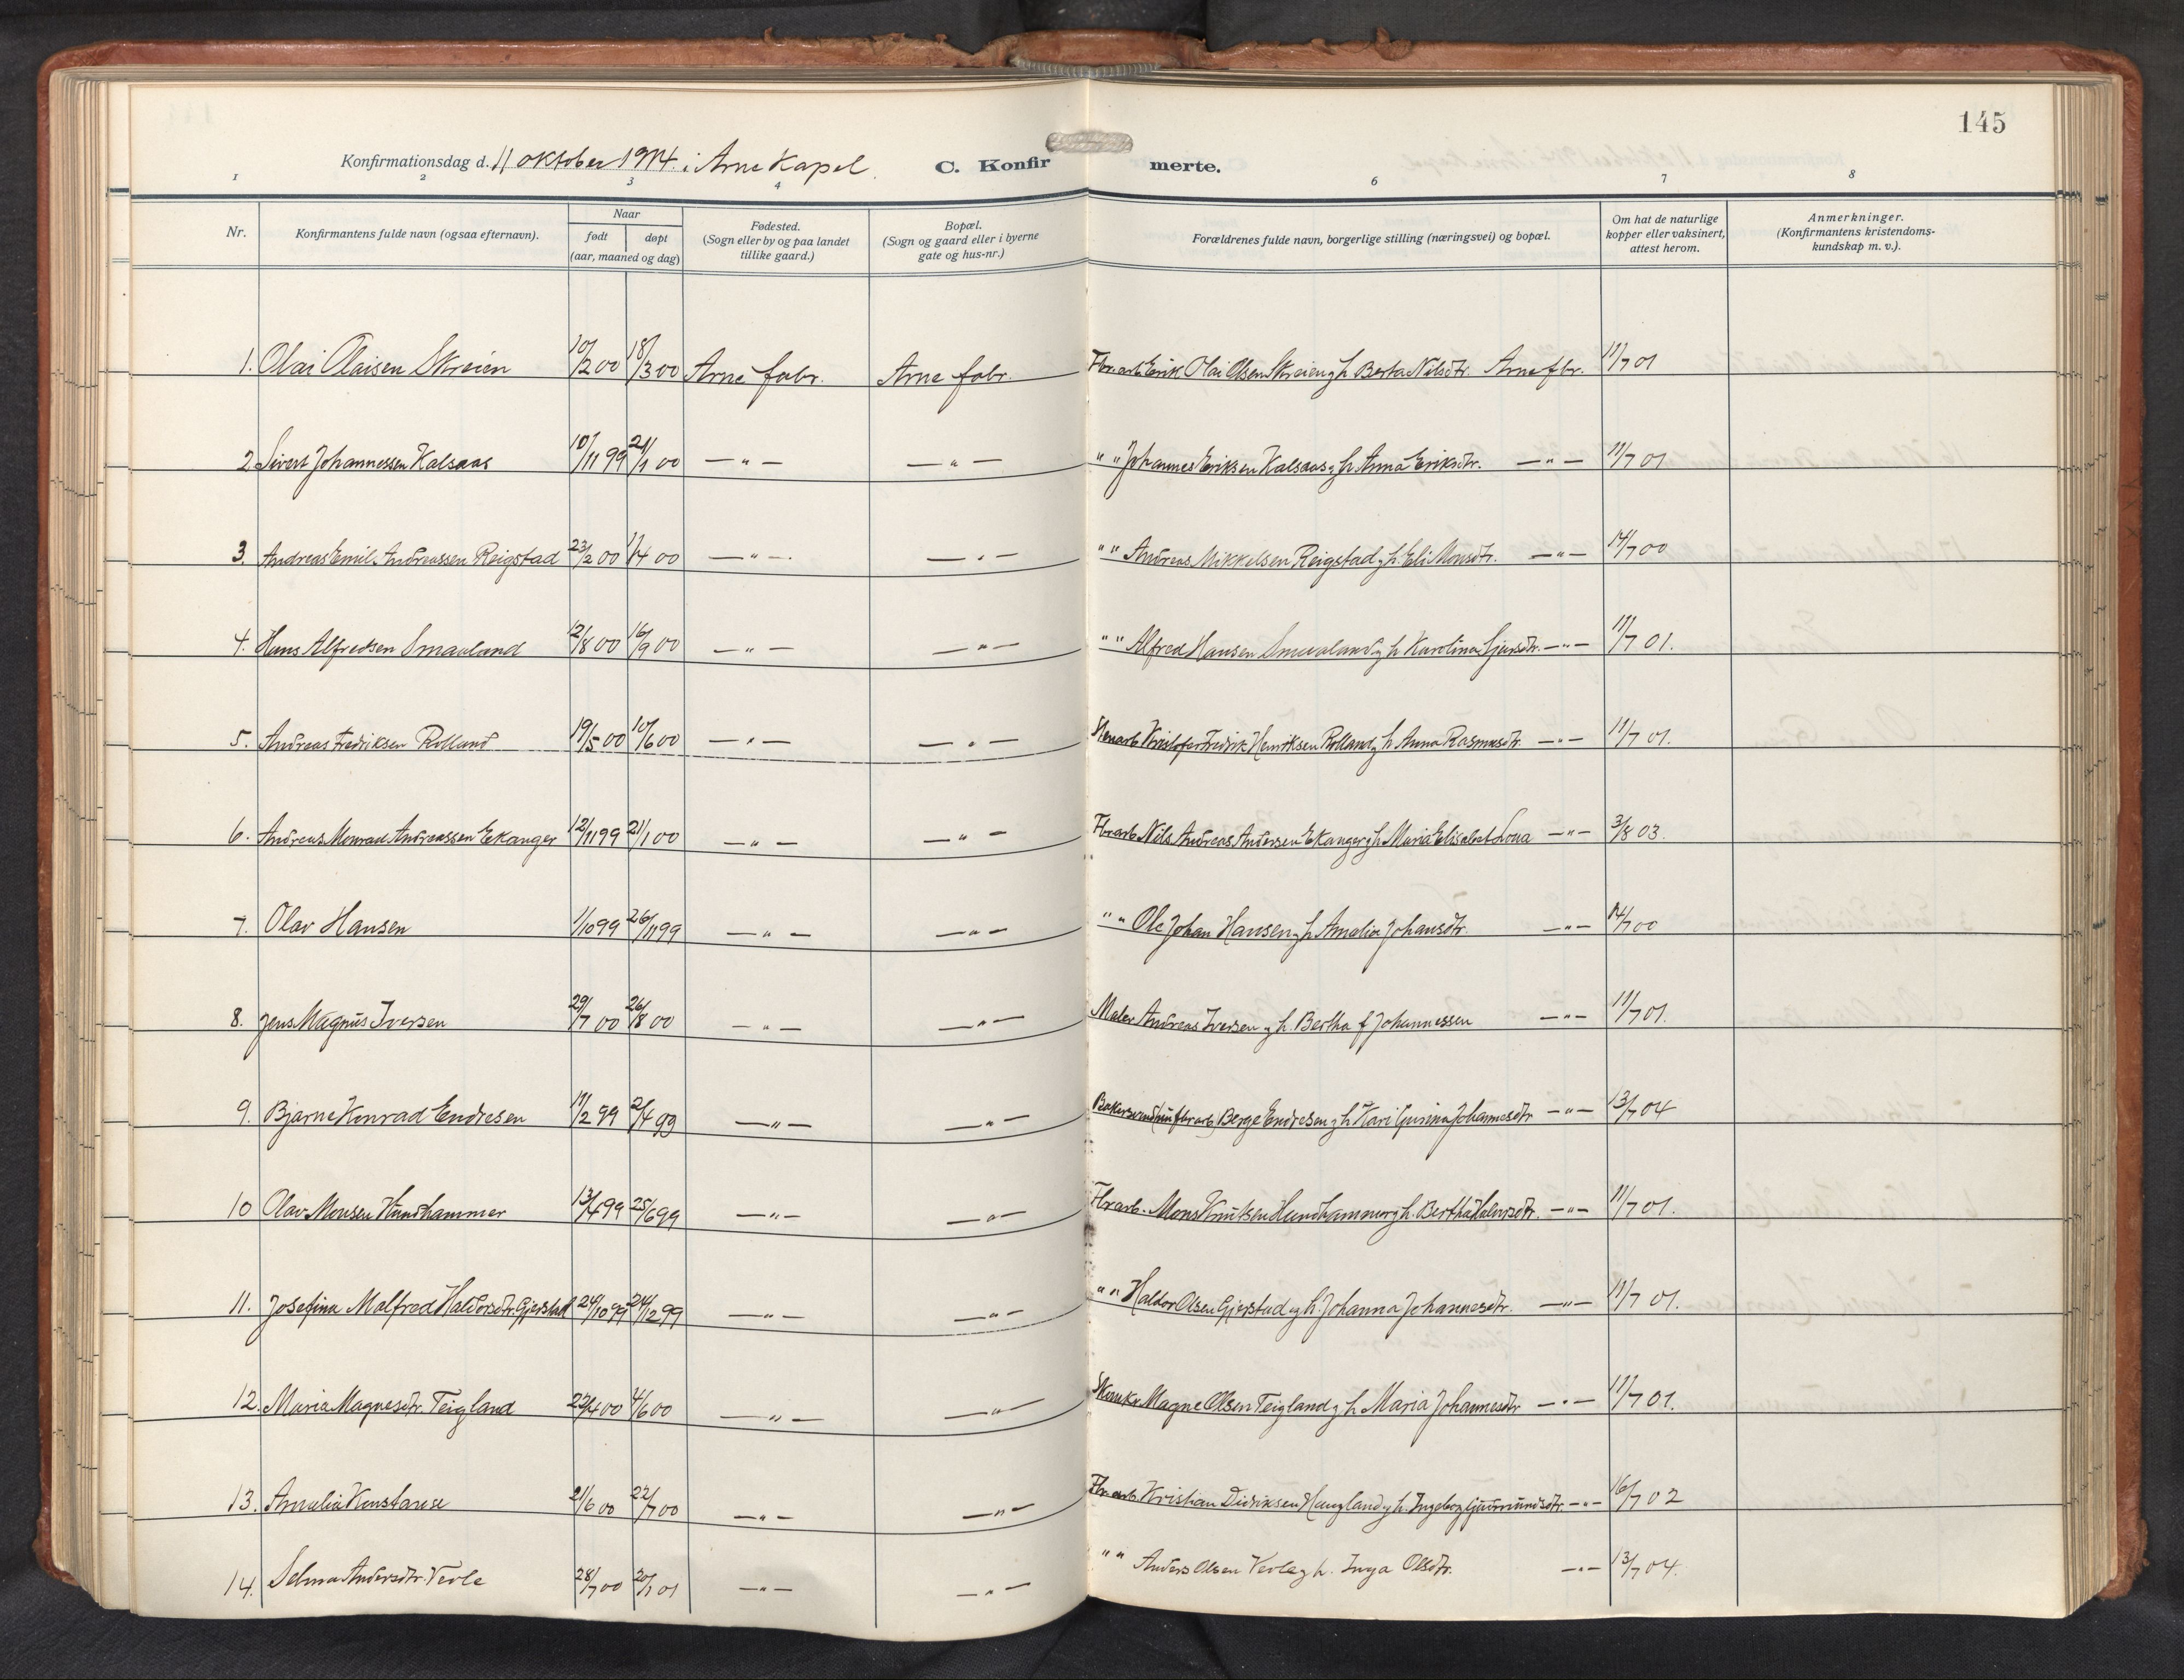 145
Konfirmationsdag d. 11 oktober 1914. i Arne Kapel. C. Konfirmerte.
1 2 3 4 6 7 8
Nr. Konfirmantens fulde navn (ogsaa efternavn). Naar født døpt (aar, maaned og dag) Fødested. (Sogn eller by og paa landet tillike gaard.) Bopæl. (Sogn og gaard eller i byerne gate og hus-nr.) Forældrenes fulde navn, borgerlige stilling (næringsvei) og bopæl. Om hat de naturlige kopper eller vaksinert, attest herom. Anmerkninger. (Konfirmantens kristendoms-kundskap m. v.).
1. Olai Olaisen Skreien 10/2 00 18/3 00 Arne fabr. Arne fabr. Fbrarb. Erik Olai Olsen Skreien g h Berta Nilsdtr. Arne fbr. 11/7 01
2. Sivert Johannessen Kalsaas 10/11 99 21/1 00 — " — — " — " " Johannes Eriksen Kalsaas g h Anna Eriksdtr. — " — 11/7 01
3. Andreas Emil Andreassen Reigstad 23/2 00 1/4 00 — " — — " — " " Andreas Mikkelsen Reigstad g h. Eli Monsdtr. — " — 14/7 00
4. Hans Alfredsen Smaaland 12/8 00 16/9 00 — " — — " — " " Alfred Hansen Smaaland g h Karolina — " — 11/7 01.
5. Andreas Fredriksen Rolland 19/5 00 10/6 00 — " — — " — Kristofer Fredrik Henriksen Rolland g h Anna Rasmusdtr. — " — 11/7 01.
6. Andreas Monrad Andreassen Ekanger 12/11 99 21/1 00 — " — — " — Fbrarb. Nils Andreas Andersen Ekanger g h Maria Elisabet Lova — " — 3/8 03.
7. Olav Hansen 1/10 99 26/11 99 — " — — " — " " Ole Johan Hansen g h Amalia Johansdtr. — " — 14/7 00
8. Jens Magnus Iversen 29/7 00 26/8 00 — " — — " — Maler Andreas Iversen g h. Bertha f Johannessen — " — 11/7 01.
9. Bjarne Konrad Endresen 19/2 99 2/4 99 — " — — " — Bakersvend (nu fbrarb.) Berge Endresen g h Kari Gurina Johannesdtr — " — 13/7 04
10 Olav Monsen Hundhammer 13/4 99 25/6 99 — " — — " — Fbrarb. Mons Knutsen Hundhammer g h. Bertha Halvorsdtr. — " — 11/7 01.
11. Josefina Malfred Haldorsdtr. Gjerstad 24/10 99 24/12 99 — " — — " — " " Haldor Olsen Gjerstad g h. Johanna Johannesdtr. — " — 11/7 01.
12. Maria Magnesdtr. Teigland 22/4 00 4/6 00 — " — — " — Skomkr. Magne Olsen Teigland g h Maria Johannesdtr — " — 11/7 01.
13. Amalia Konstanse 21/6 00 22/7 00 — " — — " — Fbrarb. Kristian Didriksen Haugland g h. Ingeborg Gudmundsdtr. — " — 16/7 02
14. Selma Andersdtr. Verle 28/7 00 20/1 01 — " — — " — " " Anders Olsen Verle g h. Inga Olsdtr. — " — 13/7 04.